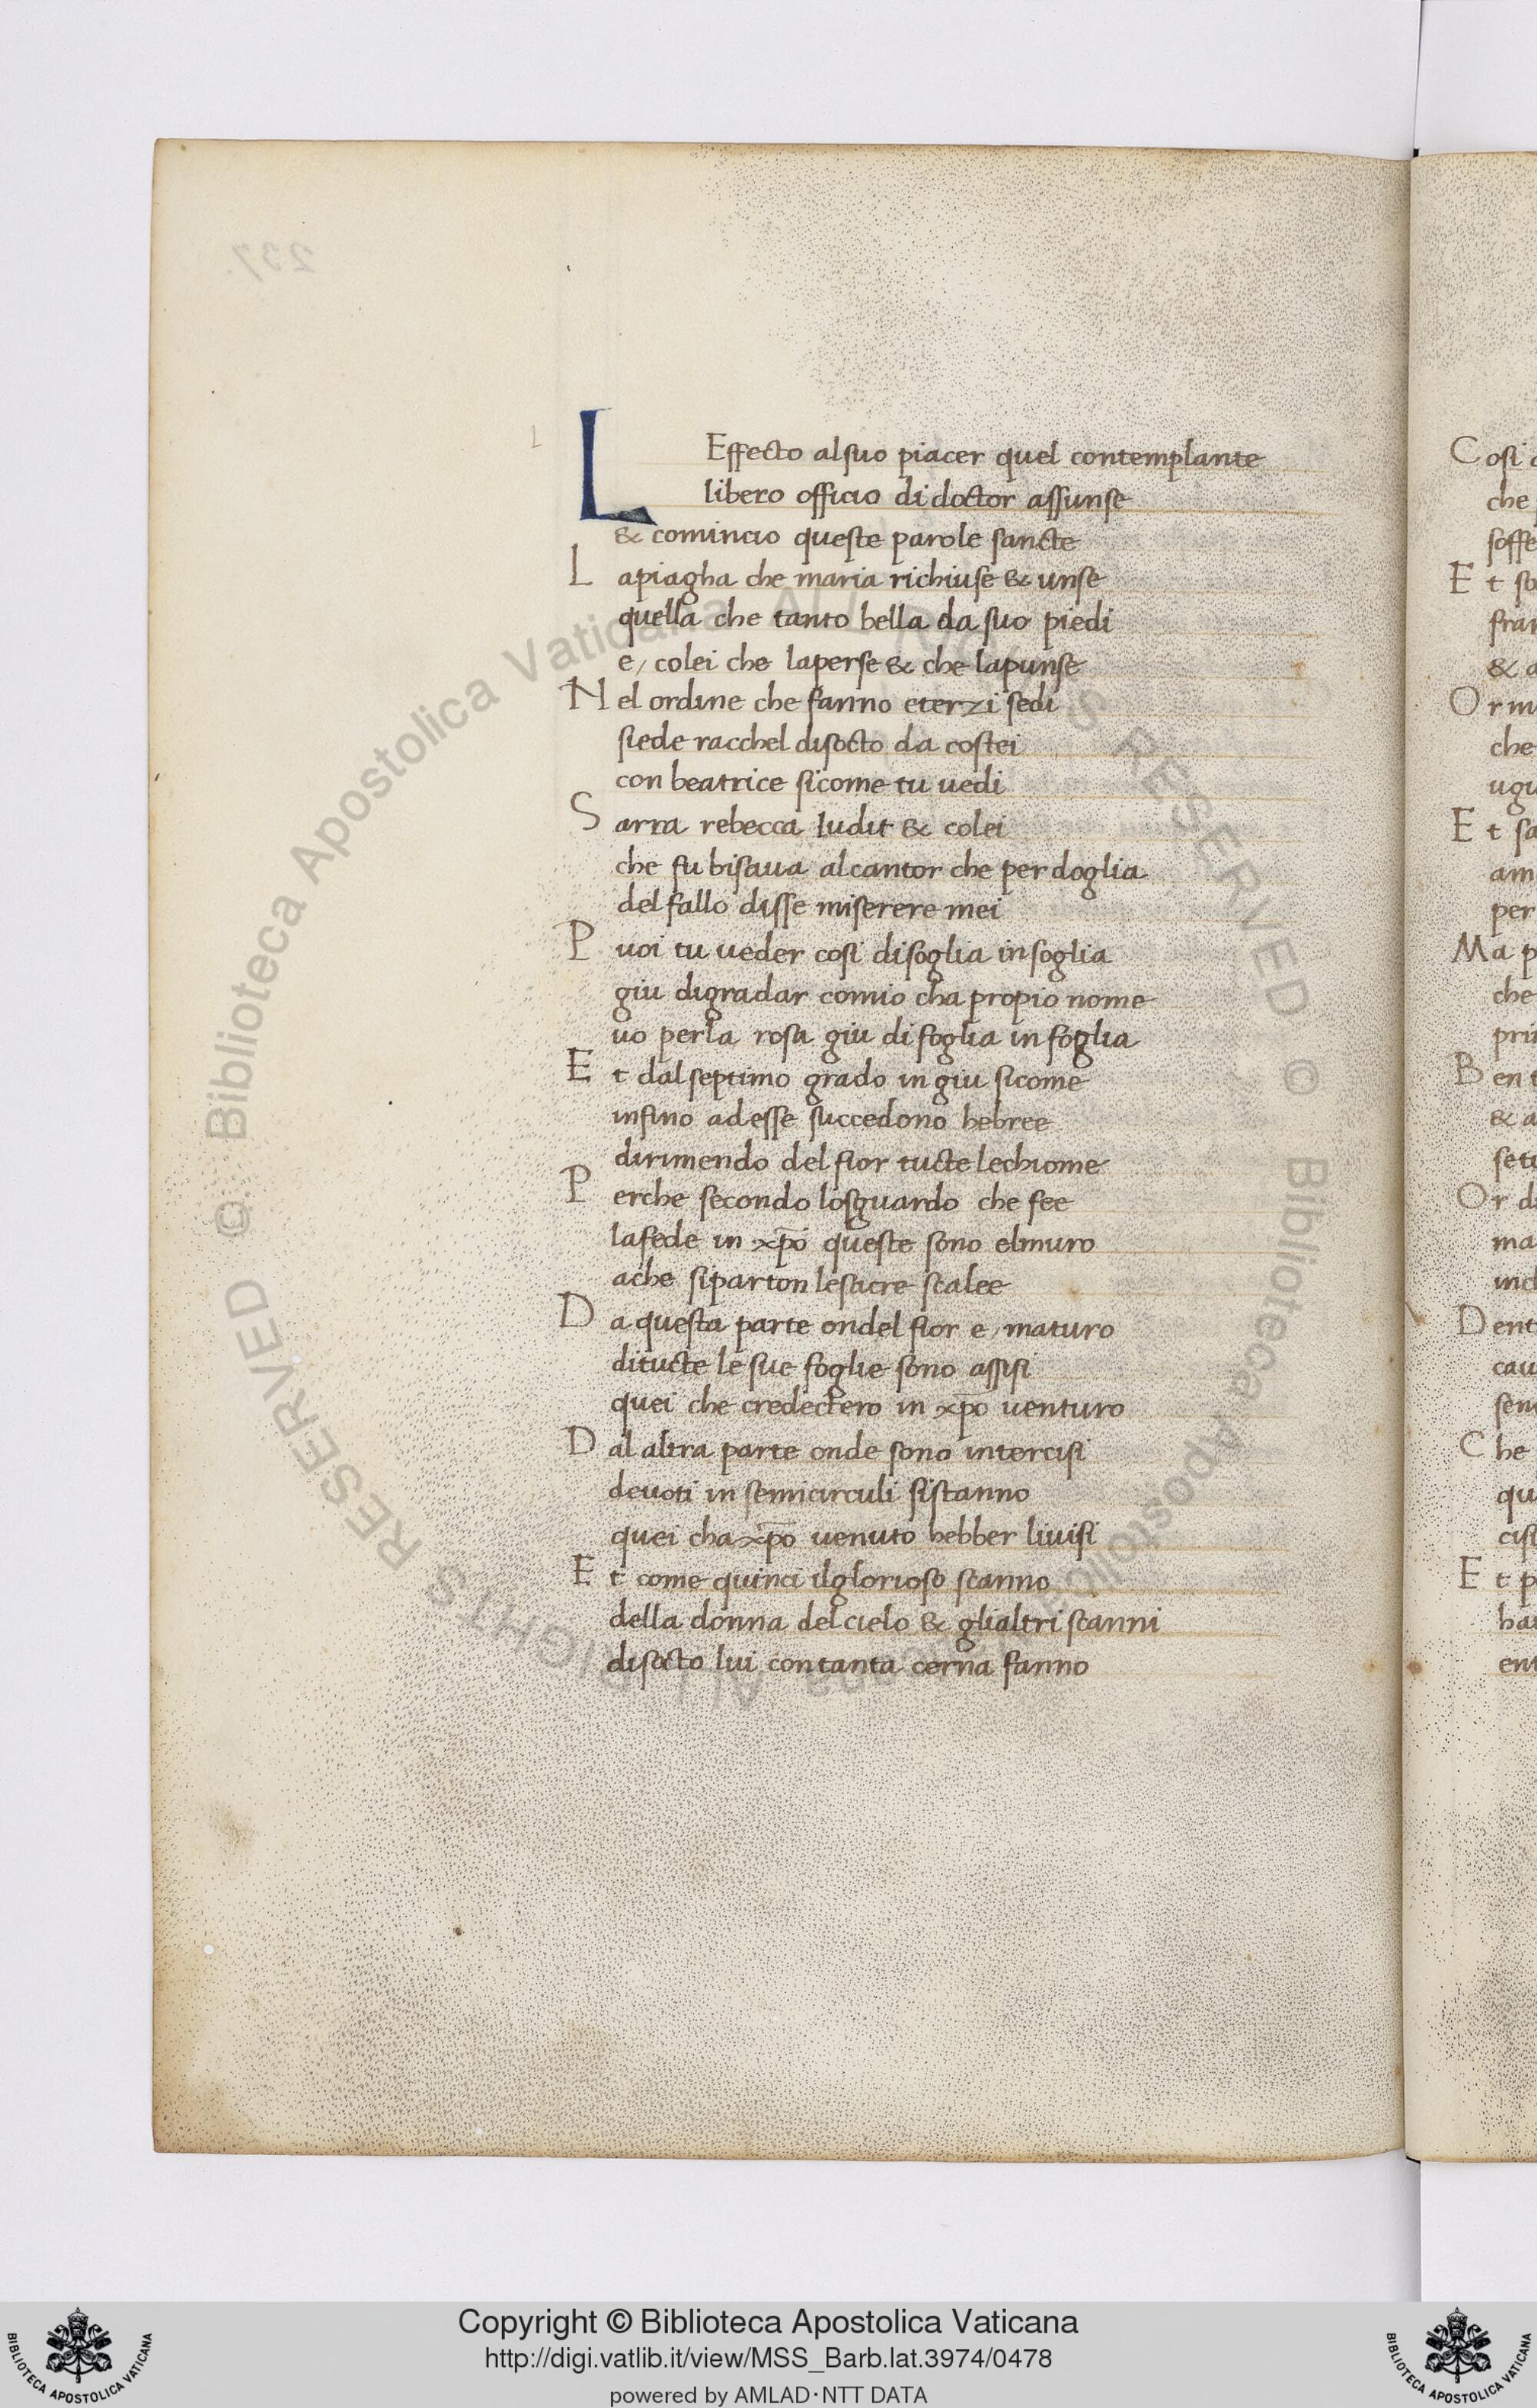 237.
L
LEffecto alsuo piacer quel contemplante
libero officio di doctor assunse
& comincio queste parole sancte
L apiagha che maria richiuse & unse
quella che tanto bella da suo piedi
e/ colei che laperse & che lapunse
N el ordine che fanno eterzi sedi
siede racchel disocto da costei
con beatrice sicome tu uedi
S arra rebecca Iudit & colei
che fu bisaua alcantor che per doglia
del fallo disse miserere mei
P uoi tu ueder cosi disoglia in soglia
giu digradar comio cha propio nome
uo perla rosa giu di foglia in foglia
E t dal septimo grado in giu sicome
infino adesse succedono hebree
dirimendo del fior tucte lechiome
P erche secondo losguardo che fee
lafede in xp̄o queste sono elmuro
ache siparton lesacre scalee
D a questa parte ondel fior e/ maturo
ditucte le sue foglie sono assisi
quei che credectero in xp̄o venturo
D al altra parte onde sono intercisi
deuoti in semicirculi sistanno
quei cha xp̄o uenuto hebber liuisi
E t come quinci ilglorioso scanno
della donna delcielo & glialtri scanni
disocto lui contanta cerna fanno
Cosi
che
soffe
E t so
fran
&
Or m
che
ugu
E t sa
am
per
Ma p
che
prin
Ben t
& a
setu
Or d
ma
incl
Dent
cau
sem
Che
qu
cisi
E t p
hau
ent
© Biblioteca Apostolica Vaticana ALL RIGHTS RESERVED © Biblioteca Apostolica Vaticana ALL RIGHTS RESERVED
Copyright © Biblioteca Apostolica Vaticana
http://digi.vatlib.it/view/MSS_Barb.lat.3974/0478
powered by AMLAD·NTT DATA
BIBLIOTECA APOSTOLICA VATICANA
BIBLIOTECA APOSTOLICA VATICANA